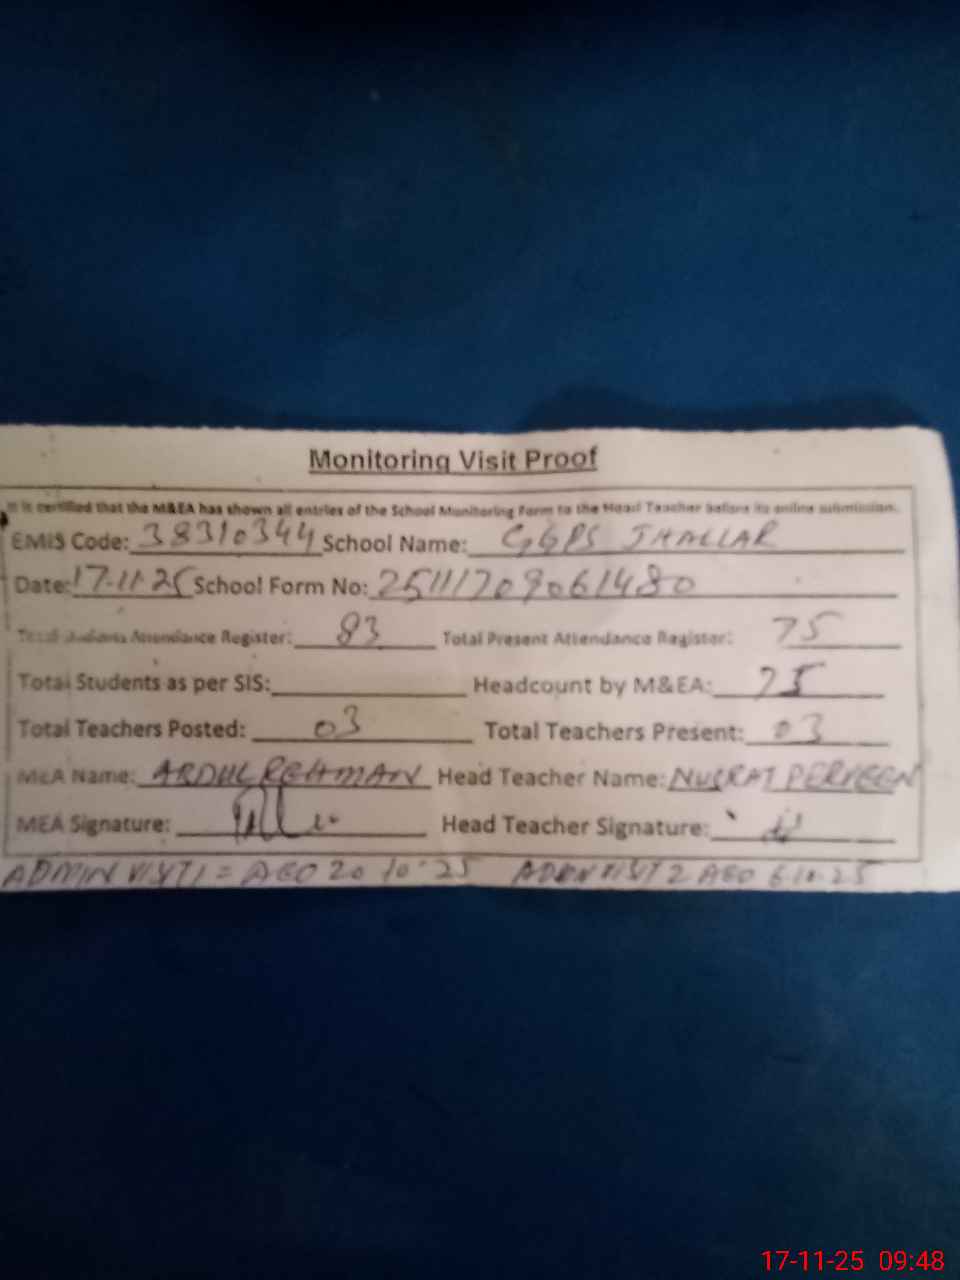 Monitoring Visit Proof
It is certified that the M&EA has shown all entries of the School Monitoring Form to the Head Teacher before its online submission.
EMIS Code: 38310344 School Name: GGPS JHALLAR
Date: 17-11-25 School Form No: 25111709061480
Total Students Attendance Register: 83 Total Present Attendance Register: 75
Total Students as per SIS: Headcount by M&EA: 75
Total Teachers Posted: 03 Total Teachers Present: 03
MEA Name: ABDUL REHMAN Head Teacher Name: NUSRAT PERVEEN
MEA Signature: Head Teacher Signature:
ADMIN VISIT 1 = AEO 20 10 25 ADMN VISIT 2 AEO 6 10 25
17-11-25 09:48